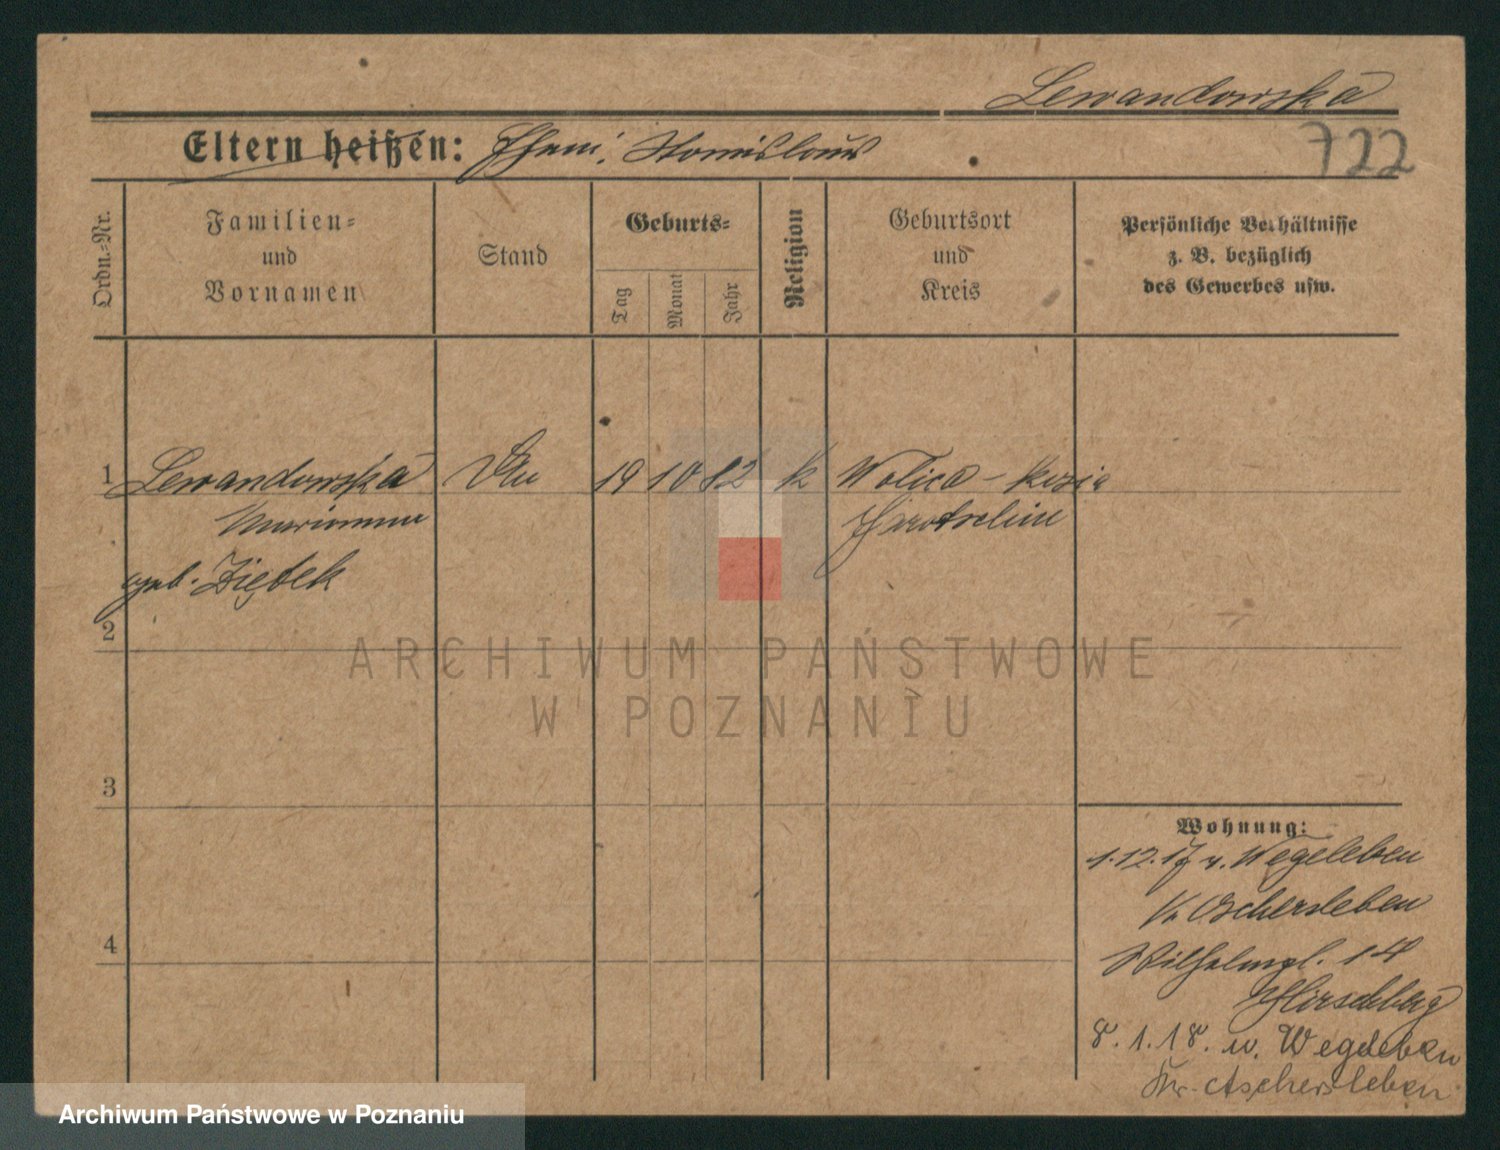 Lewandowska
Eltern heißen: Ehem. Stanislaus
722
Ordn.-Nr.
Familien-
und
Vornamen
Stand
Geburts-
Tag
Monat
Jahr
Religion
Geburtsort
und
Kreis
Persönliche Verhältnisse
z. B. bezüglich
des Gewerbes usw.
1 Lewandowska 19 10 82 k Wolica - Kozia
Marianna Jarotschin
geb. Ziętek
2
3
4
ARCHIWUM PAŃSTWOWE
W POZNANIU
Wohnung:
1.12.17 v. Wegeleben
Kr. Oschersleben
Wilhelmspl. 14
Hirschberg
8.1.18. n. Wegeleben
Kr. Aschersleben
Archiwum Państwowe w Poznaniu